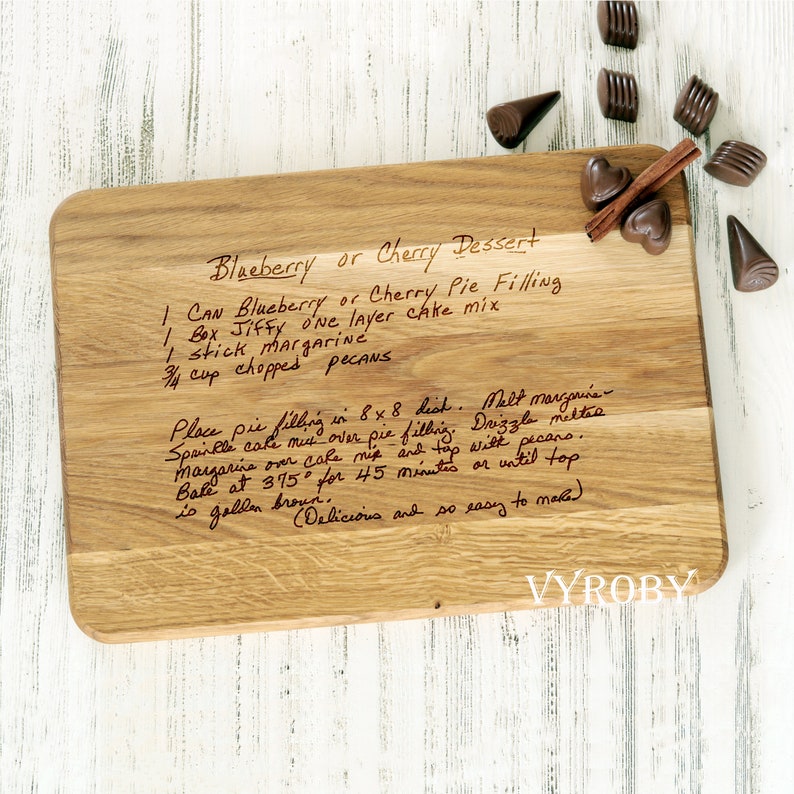 Blueberry or Cherry Dessert
1 Can Blueberry or Cherry Pie Filling
1 Box Jiffy one layer cake mix
1 stick margarine
3/4 cup chopped pecans
Place pie filling in 8x8 dish. Melt margarine-
Sprinkle cake mix over pie filling. Drizzle melted
margarine over cake mix and top with pecans.
Bake at 375° for 45 minutes or until top
is golden brown.
(Delicious and so easy to make)
VYROBY